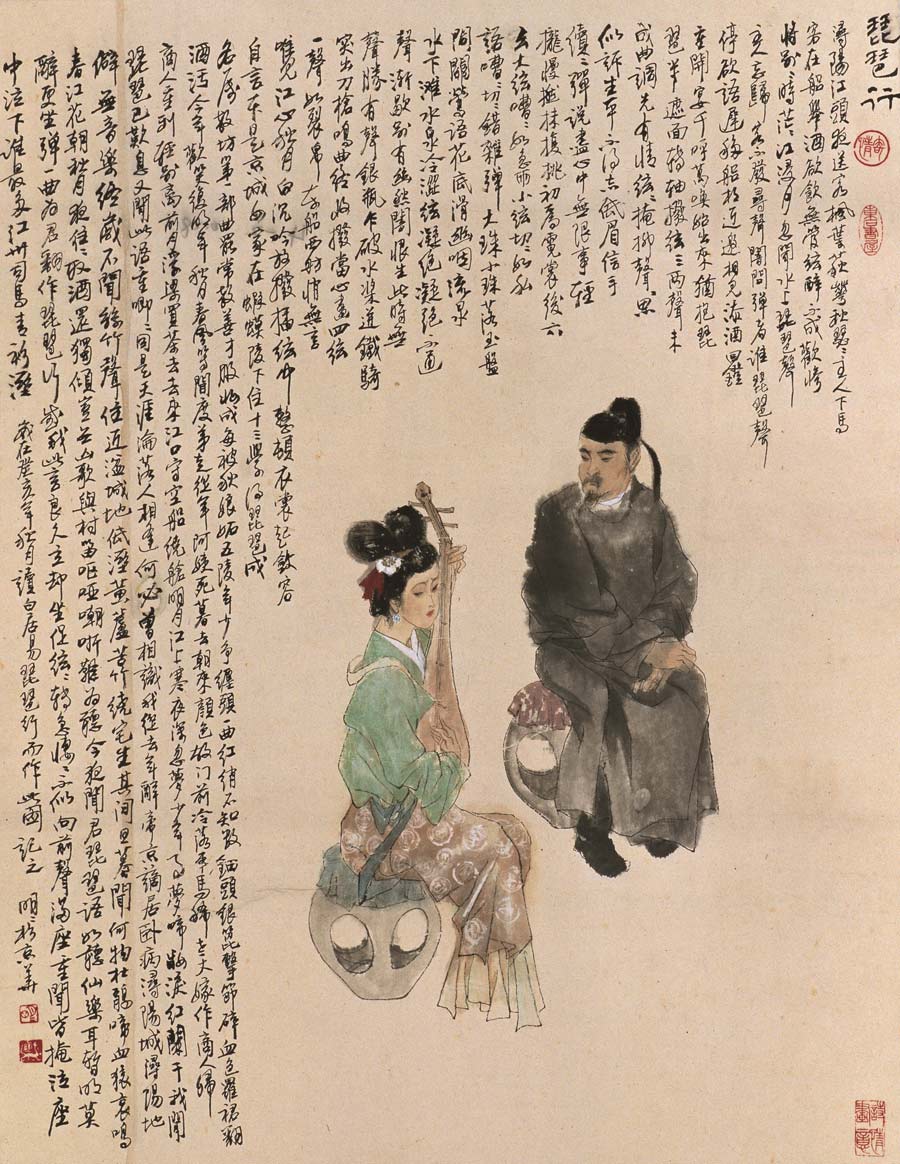 琵琶行
潯陽江頭夜送客楓葉荻花秋瑟瑟主人下馬
客在船舉酒欲飲無管絃醉不成歡慘
將別別時茫茫江浸月忽聞水上琵琶聲
主人忘歸客不發尋聲闇問彈者誰琵琶聲
停欲語遲移船相近邀相見添酒回燈
重開宴千呼萬喚始出來猶抱琵
琶半遮面轉軸撥絃三兩聲未
成曲調先有情絃絃掩抑聲聲思
似訴生平不得志低眉信手
續續彈說盡心中無限事輕
攏慢撚抹復挑初為霓裳後六
幺大絃嘈嘈如急雨小絃切切如私
語嘈嘈切切錯雜彈大珠小珠落玉盤
間關鶯語花底滑幽咽流泉
水下灘水泉冷澀絃凝絕凝絕不通
聲漸歇別有幽愁闇恨生此時無
聲勝有聲銀瓶乍破水漿迸鐵騎
突出刀槍鳴曲終收撥當心畫四絃
一聲如裂帛東船西舫悄無言
唯見江心秋月白沉吟放撥插絃中整頓衣裳起斂容
自言本是京城女家在蝦蟆陵下住十三學得琵琶成
名屬教坊第一部曲罷常教善才服妝成每被秋娘妒五陵年少爭纏頭一曲紅綃不知數鈿頭銀篦擊節碎血色羅裙翻
酒污今年歡笑復明年秋月春風等閒度弟走從軍阿姨死暮去朝來顏色故門前冷落車馬稀老大嫁作商人婦
商人重利輕別離前月浮梁買茶去去來江口守空船繞艙明月江上寒夜深忽夢少年事夢啼妝淚紅闌干我聞
琵琶已歎息又聞此語重唧唧同是天涯淪落人相逢何必曾相識我從去年辭帝京謫居臥病潯陽城潯陽地
僻無音樂終歲不聞絲竹聲住近湓城地低濕黃蘆苦竹繞宅生其間旦暮聞何物杜鵑啼血猿哀鳴
春江花朝秋月夜往往取酒還獨傾豈無山歌與村笛嘔啞嘲哳難為聽今夜聞君琵琶語如聽仙樂耳暫明莫
辭更坐彈一曲為君翻作琵琶行感我此言良久立却坐促絃絃轉急悽悽不似向前聲滿座重聞皆掩泣座
中泣下誰最多江州司馬青衫濕
歲在癸亥年秋月讀白居易琵琶行而作此圖記之 明明於京華
詩情畫意